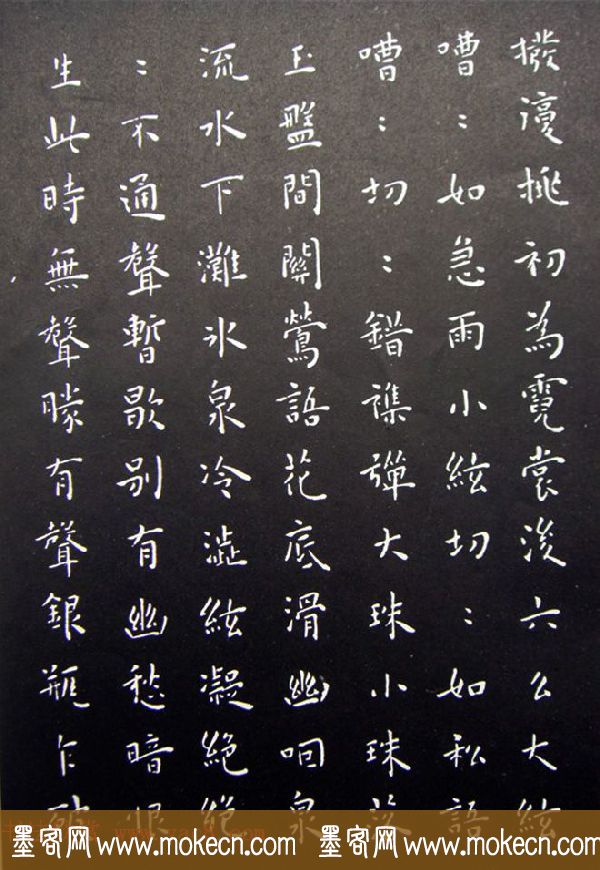 撥復挑初為霓裳後六么大絃
嘈：如急雨小絃切：如私語
嘈：切：錯襍彈大珠小珠落
玉盤間關鶯語花底滑幽咽泉
流水下灘氷泉冷澀絃凝絶絶
：不通聲暫歇別有幽愁暗恨
生此時無聲勝有聲銀瓶乍破
墨客网 www.mokecn.com 墨客网 www.mokecn.com